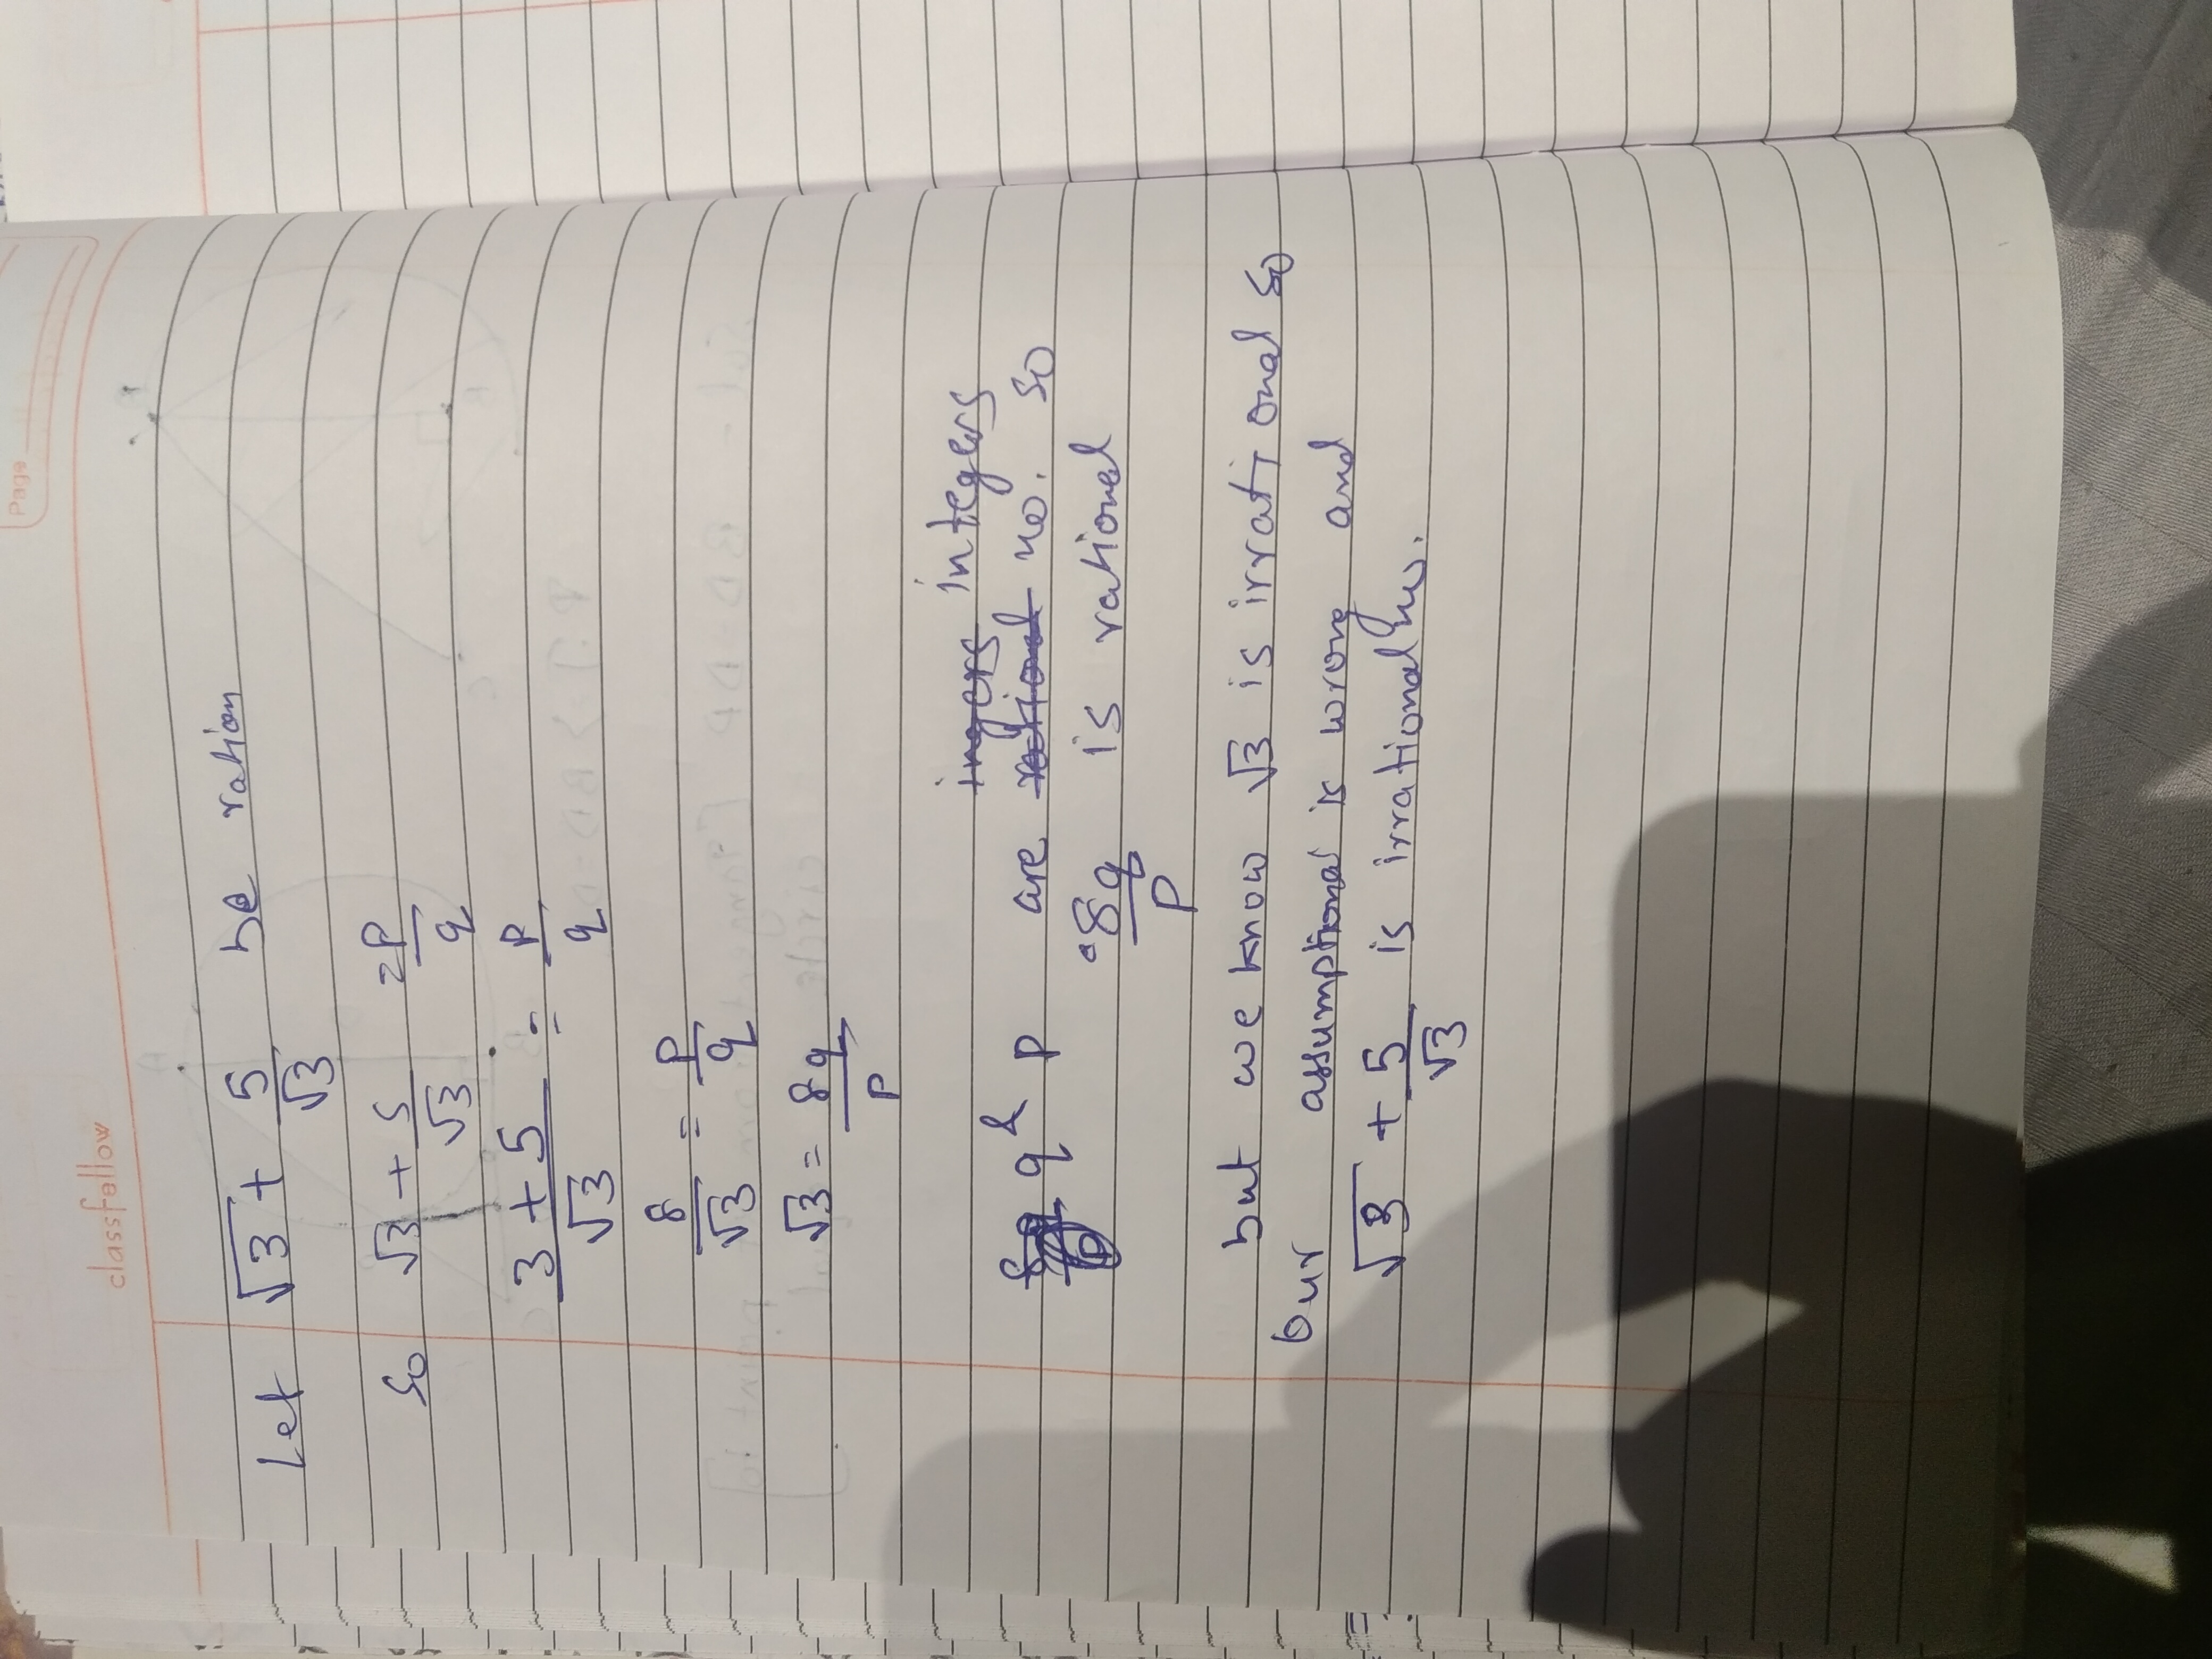 classfellow
Page
Let √3 + 5/√3 be ration
So √3 + 5/√3 = p/q
3 + 5/√3 = p/q
8/√3 = p/q
√3 = 8q/p
integers
q & p are no. so
8q/p is rational
but we know √3 is irrational so
our assumptional is wrong and
√3 + 5/√3 is irrational no.